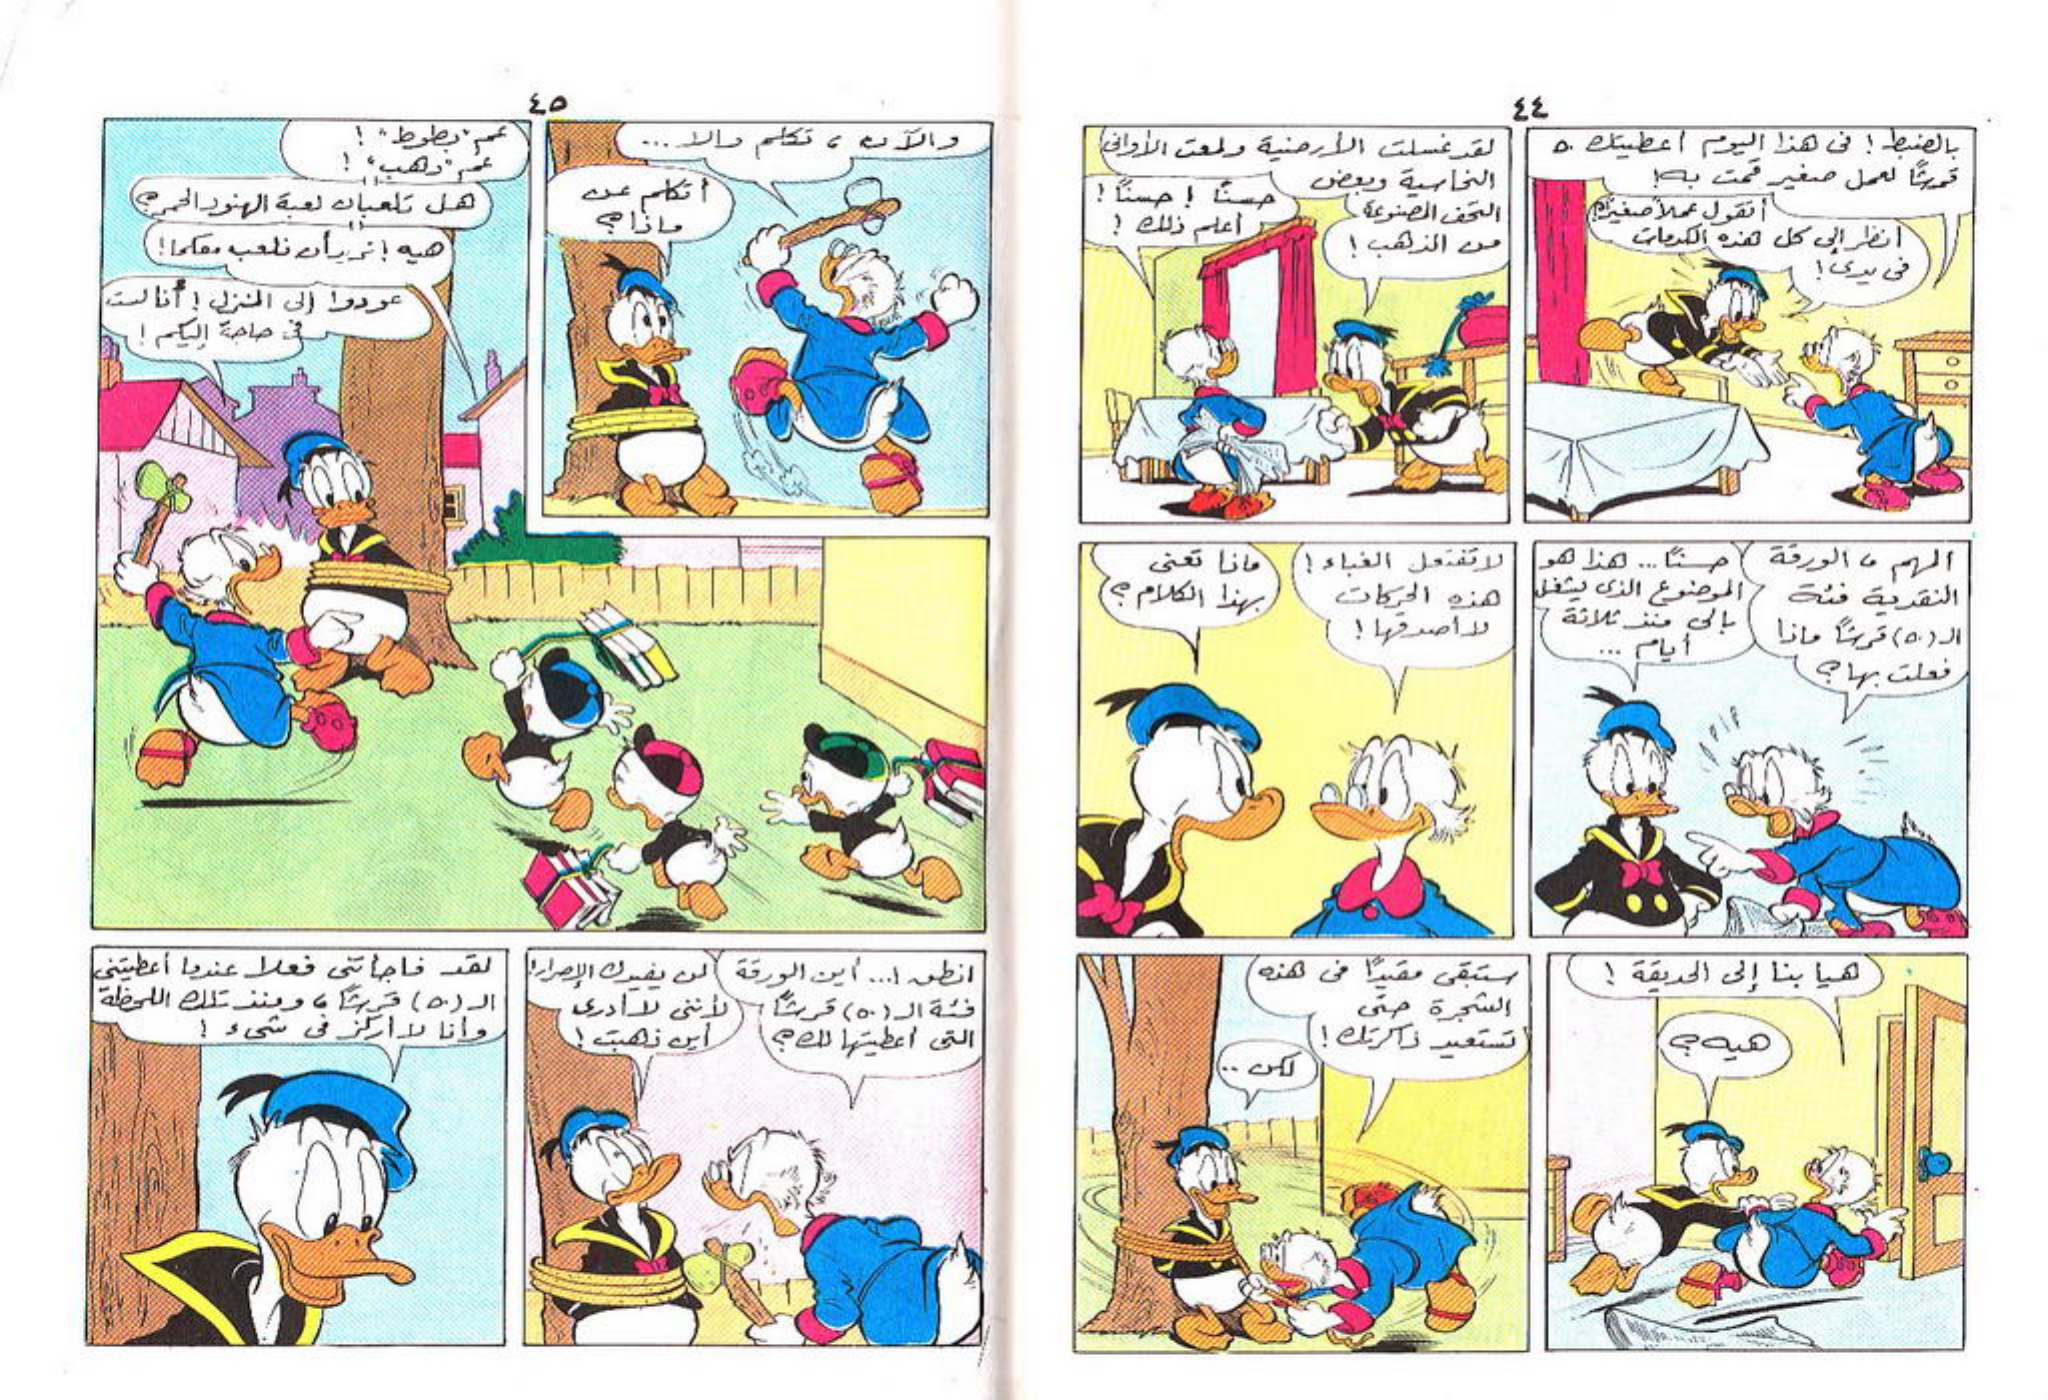 ٤٤
بالضبط! فى هذا اليوم أعطيتك ٥٠
قرشًا لعمل صغير قمت به!
أتقول عملاً صغيرًا؟!
انظر إلى كل هذه الكدمات
فى يدى!
لقد غسلت الأرضية ولمعت الأوانى
النحاسية وبعض
التحف المصنوعة
من الذهب!
حسنًا! حسنًا!
أعلم ذلك!
المهم، الورقة
النقدية فئة
الـ (٥٠) قرشًا ماذا
فعلت بها؟
حسنًا... هذا هو
الموضوع الذى يشغل
بالى منذ ثلاثة
أيام ...
لا تفتعل الغباء!
هذه الحركات
لا أصدقها!
ماذا تعنى
بهذا الكلام؟
هيا بنا إلى الحديقة!
هيه؟
ستبقى مقيدًا فى هذه
الشجرة حتى
تستعيد ذاكرتك!
لكن ..
٤٥
والآن، تكلم والا ...
أتكلم عن
ماذا؟
عم "بطوط"!
عم "دهب"!
هل تلعبان لعبة الهنود الحمر؟
هيه! نريد أن نلعب معكما!
عودوا إلى المنزل! أنا لست
فى حاجة إليكم!
انطق!... أين الورقة
فئة الـ (٥٠) قرشًا
التى أعطيتها لك؟
لن يفيدك الإصرار!
لأننى لا أدرى
أين ذهبت!
لقد فاجأتنى فعلا عندما أعطيتنى
الـ (٥٠) قرشًا، ومنذ تلك اللحظة
وأنا لا أركز فى شىء!